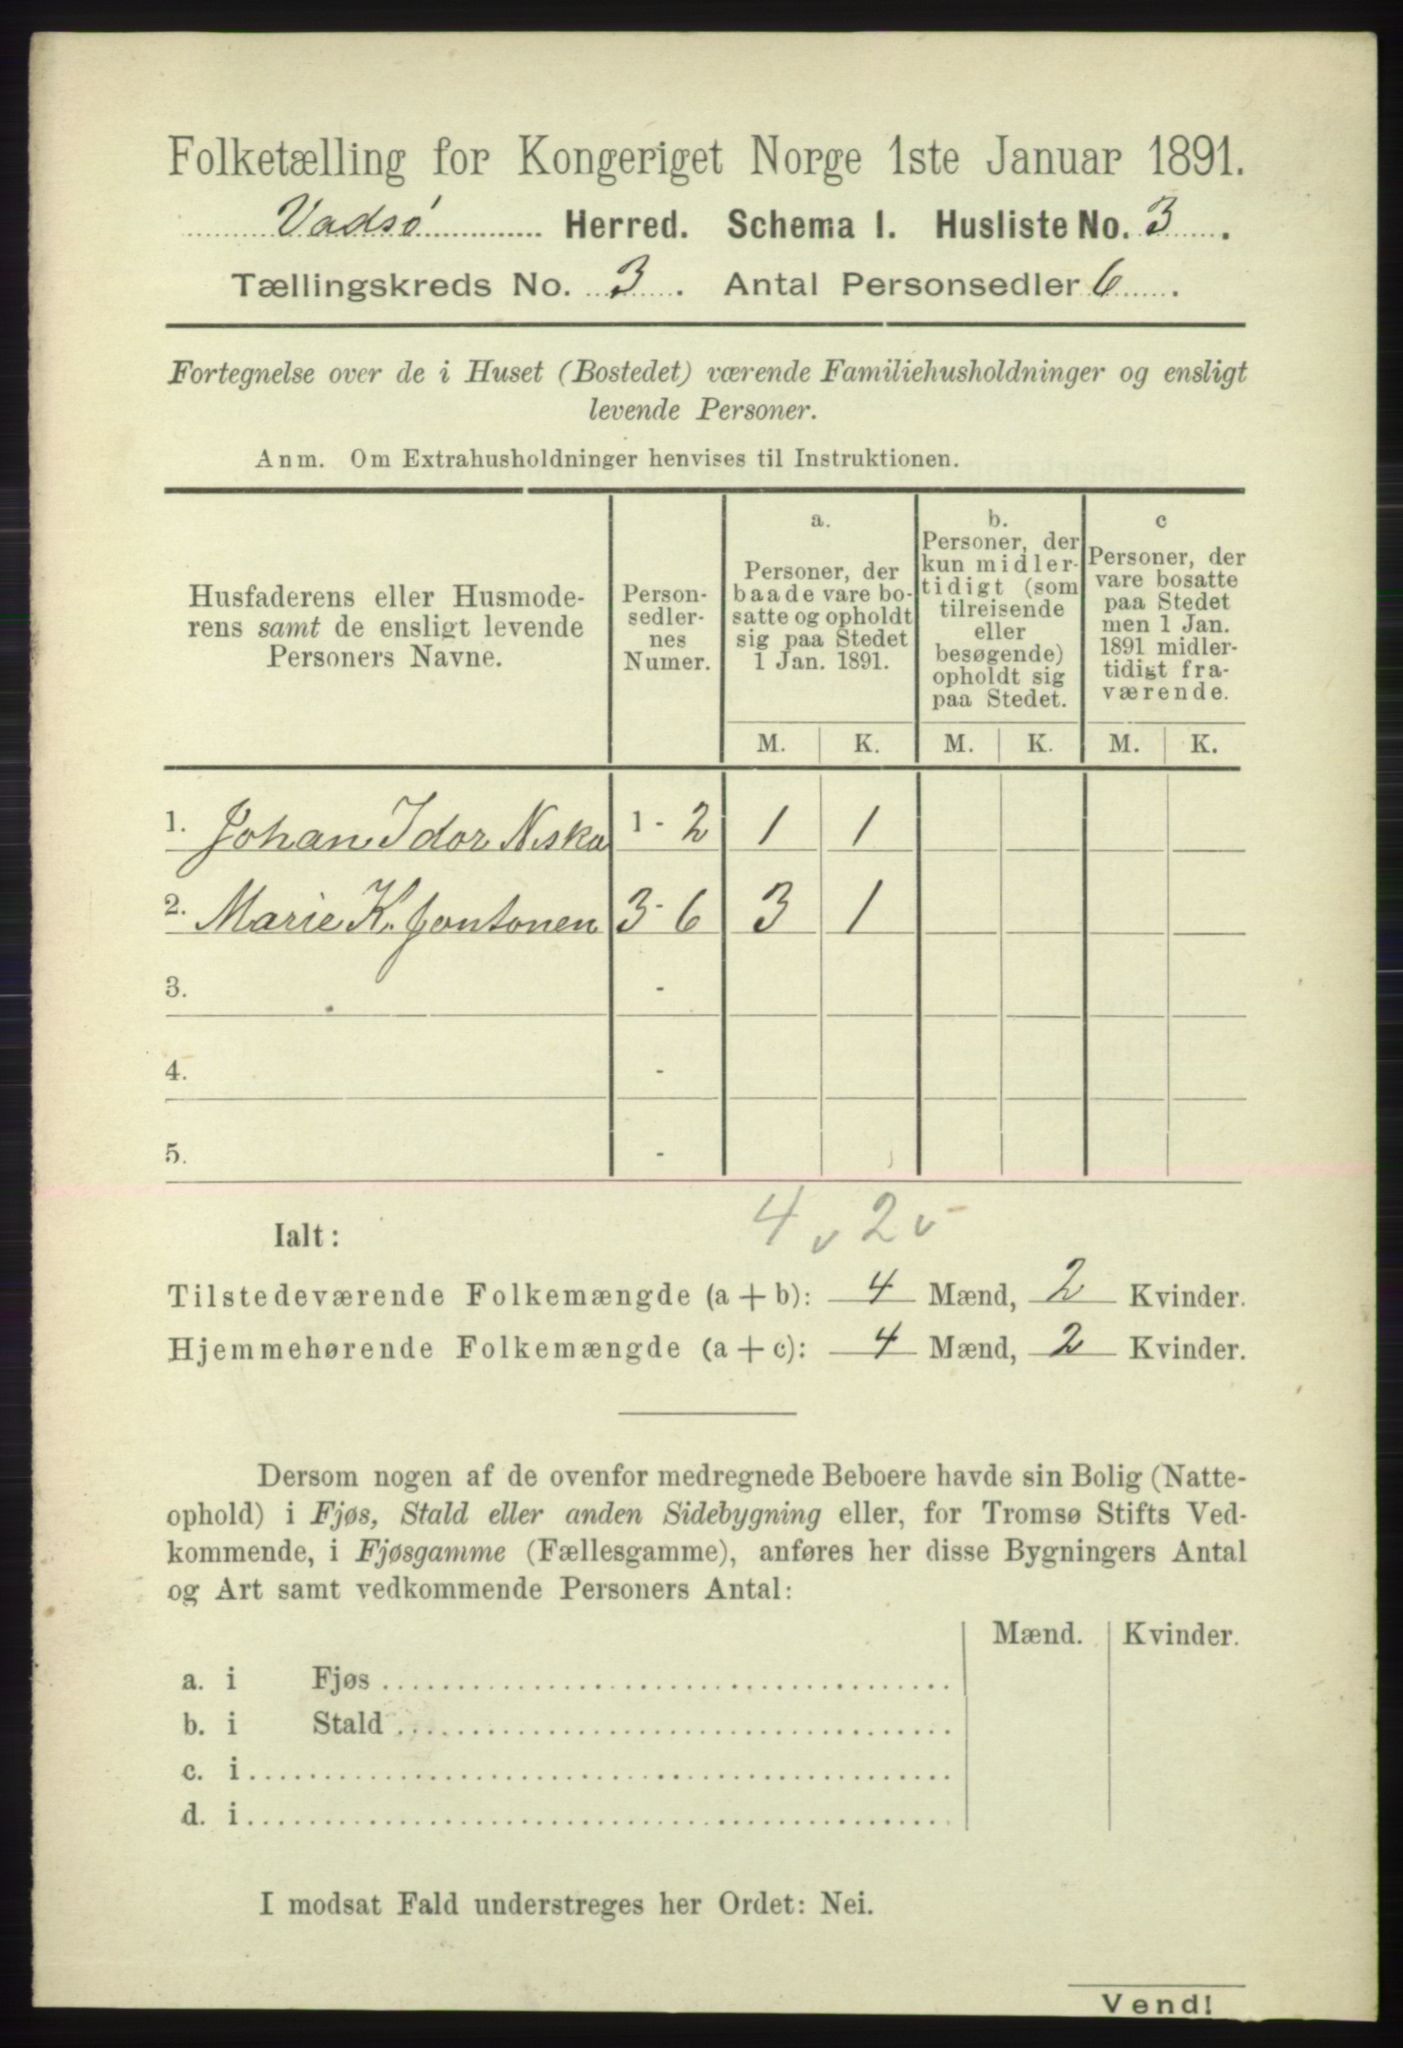 Folketælling for Kongeriget Norge 1ste Januar 1891.
Vadsø Herred. Schema I. Husliste No. 3.
Tællingskreds No. 3. Antal Personsedler 6.
Fortegnelse over de i Huset (Bostedet) værende Familiehusholdninger og ensligt
levende Personer.
Anm. Om Extrahusholdninger henvises til Instruktionen.
Husfaderens eller Husmode-
rens samt de ensligt levende
Personers Navne.
Person-
sedler-
nes
Numer.
a.
Personer, der
baade vare bo-
satte og opholdt
sig paa Stedet
1 Jan. 1891.
b.
Personer, der
kun midler-
tidigt (som
tilreisende
eller
besøgende)
opholdt sig
paa Stedet.
c
Personer, der
vare bosatte
paa Stedet
men 1 Jan.
1891 midler-
tidigt fra-
værende.
M. K. M. K. M. K.
1. Johan Idor Niska 1-2 1 1
2. Marie K. 3-6 3 1
3. -
4. -
5. -
4 v 2 v
Ialt:
Tilstedeværende Folkemængde (a + b): 4 Mænd, 2 Kvinder.
Hjemmehørende Folkemængde (a + c): 4 Mænd, 2 Kvinder.
Dersom nogen af de ovenfor medregnede Beboere havde sin Bolig (Natte-
ophold) i Fjøs, Stald eller anden Sidebygning eller, for Tromsø Stifts Ved-
kommende, i Fjøsgamme (Fællesgamme), anføres her disse Bygningers Antal
og Art samt vedkommende Personers Antal:
Mænd. Kvinder.
a. i Fjøs
b. i Stald
c. i
d. i
I modsat Fald understreges her Ordet: Nei.
Vend!